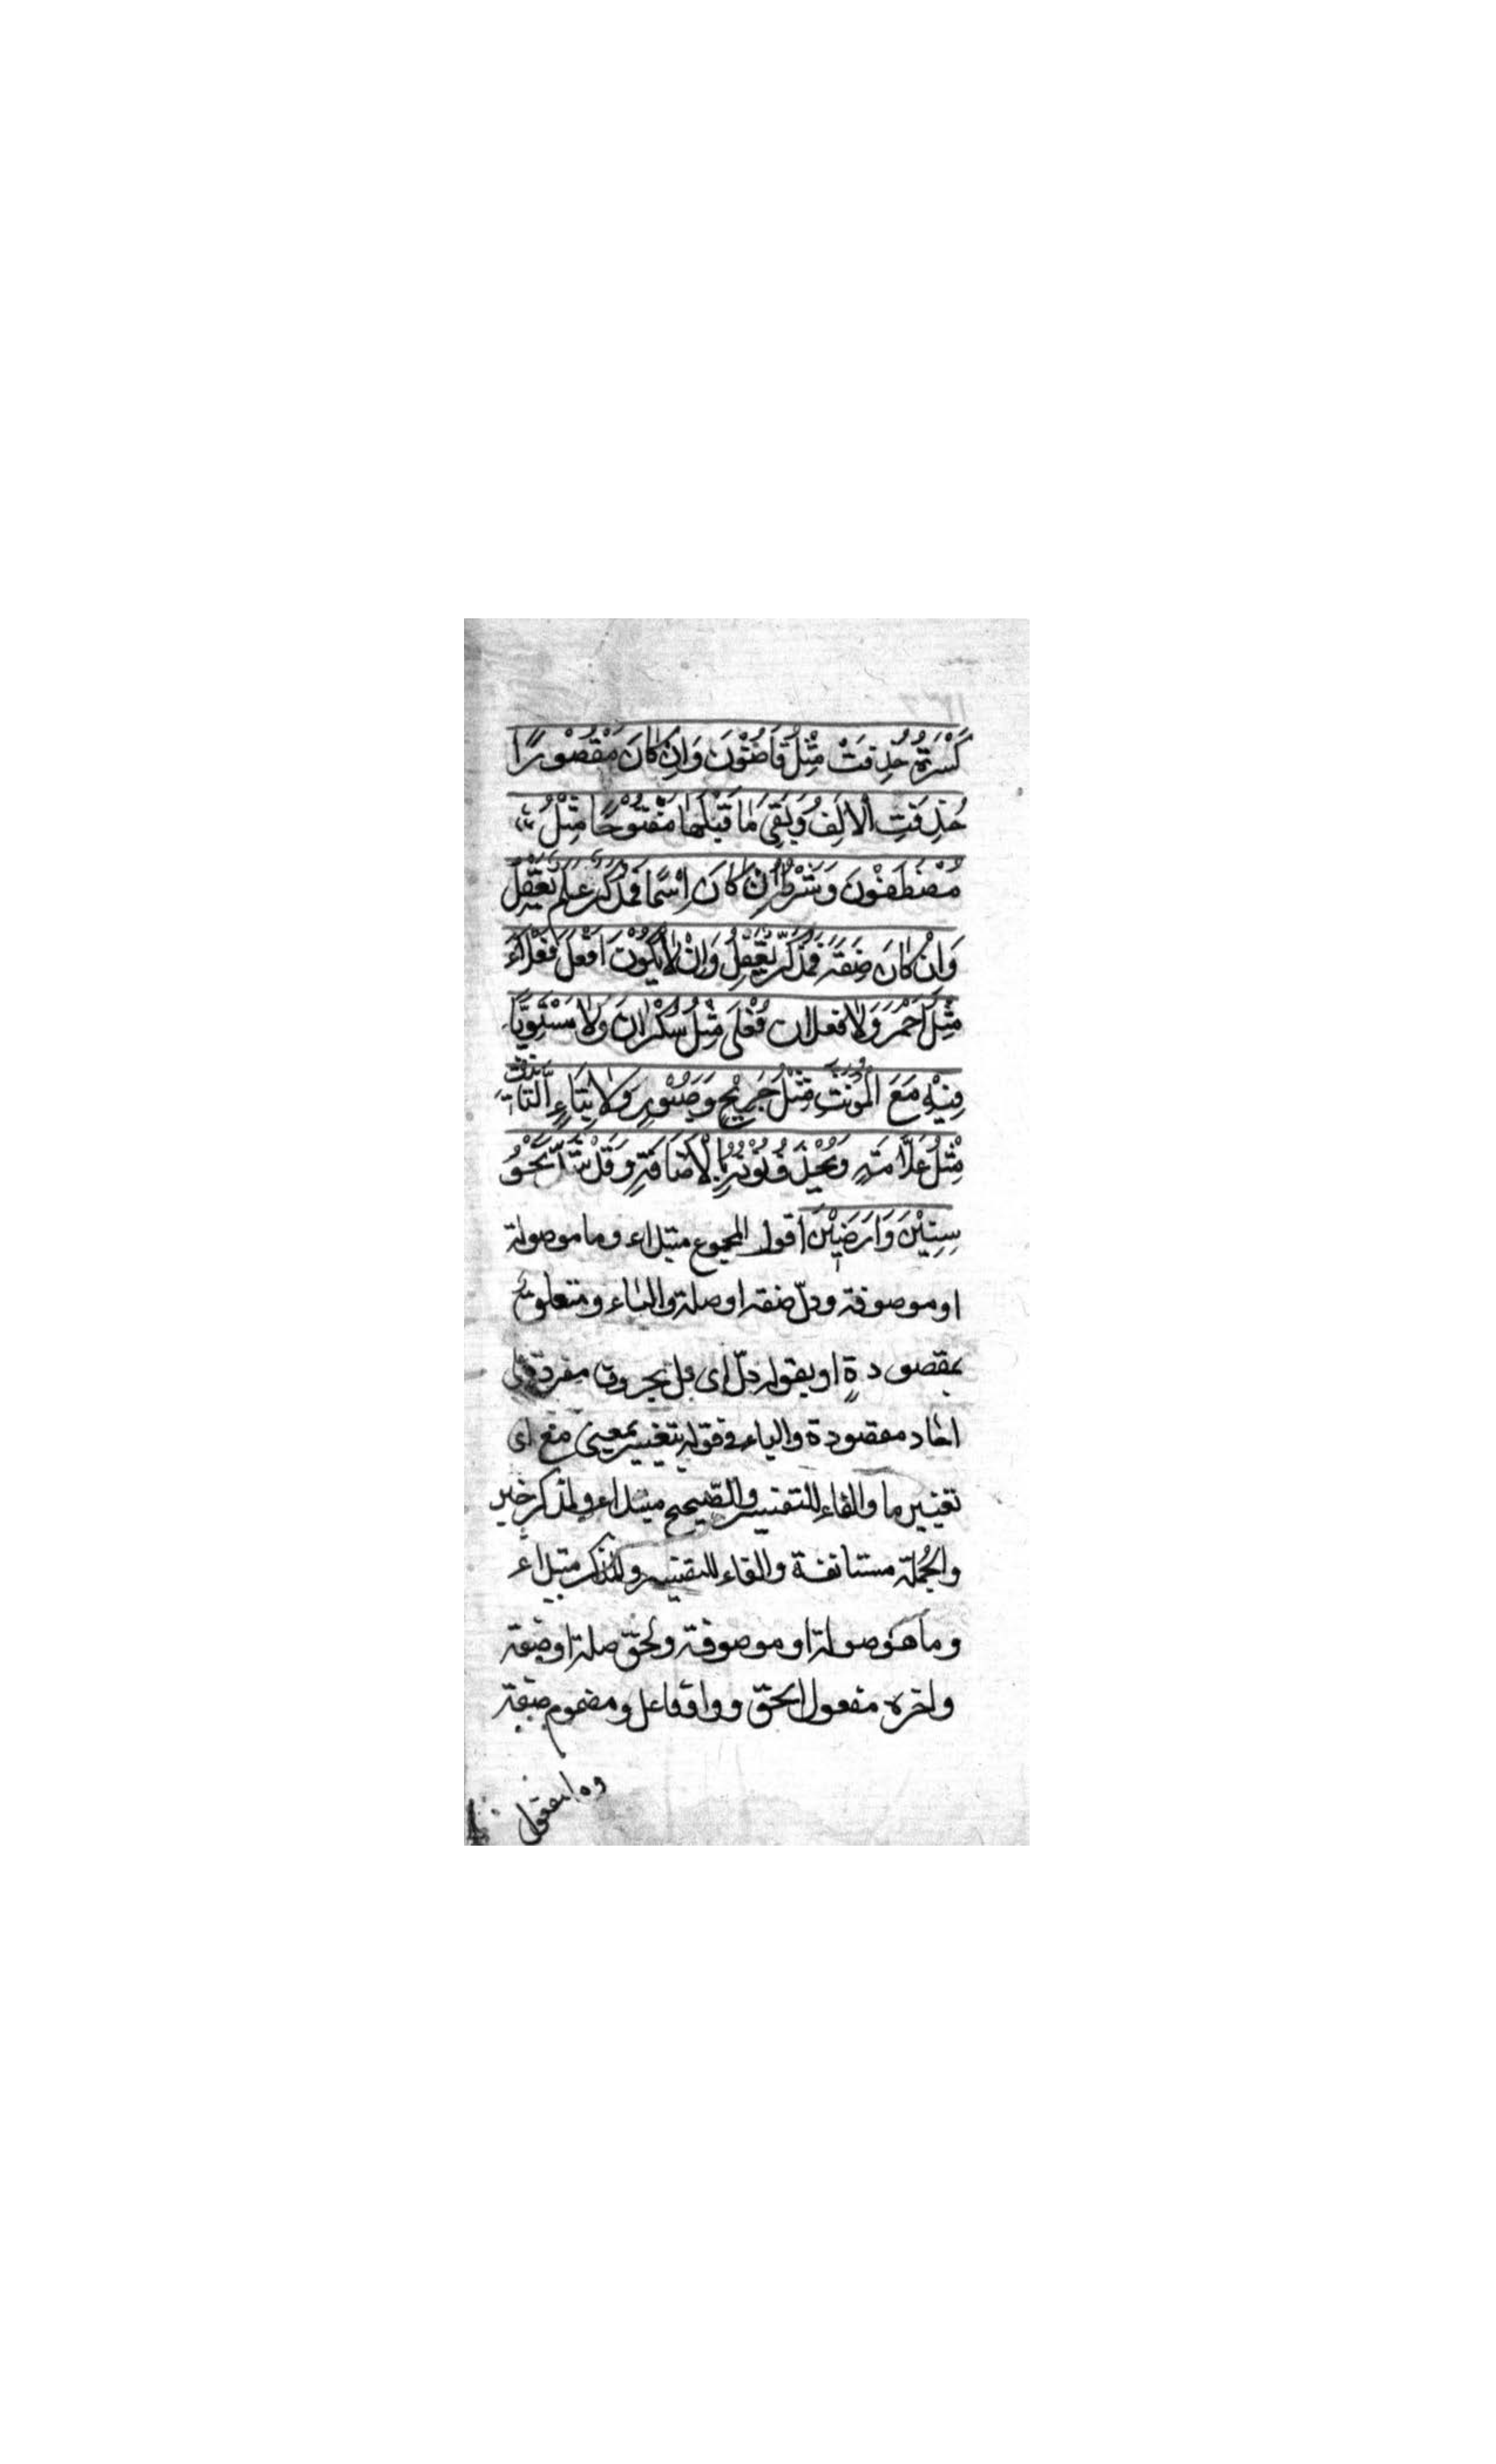 كَسْرَةٌ حُذِفَتْ مِثْلُ قَاضُوْنَ وَاِنْ كَانَ مَقْصُوْرًا
حُذِفَتِ الْاَلِفُ وَبَقِيَ مَا قَبْلَهَا مَفْتُوْحًا مِثْلُ
مُصْطَفَوْنَ وَشَرْطُهُ اِنْ كَانَ اِسْمًا فَمُذَكَّرٌ عَلَمٌ يَعْقِلُ
وَاِنْ كَانَ صِفَةً فَمُذَكَّرٌ يَعْقِلُ وَاِنْ لَا يَكُوْنَ اَفْعَلَ فَعْلَاءَ
مِثْلُ اَحْمَرَ وَلَا فعلان فَعْلَى مِثْلُ سَكْرَانَ وَلَا مُسْتَوِيًّا
فِيْهِ مَعَ الْمُؤَنَّثِ مِثْلُ جَرِيْحٍ وَصَبُوْرٍ وَلَا بِتَاءِ التَّانيث
مِثْلُ عَلَّامَةٍ وَيُحْذَفُ نُوْنُهُ بِالْاِضَافَةِ وَقَدْ شَذَّ نَحْوُ
سِنِيْنَ وَاَرَضِيْنَ اقول المجموع مبتداء وما موصولة
او موصوفة ودلّ صفة او صلة والباء ومتعلق
بمقصودةٍ او بقوله دلّ اى دل بحروف مفردة
احاد مقصودة والباء فى قوله بتغيير بمعنى مع اى
تغيير ما والفاء للتفسير والصّحيح مبتداء ولمذكر خبر
والجُملة مستانفة والفاء للتفسير والمذكر مبتداء
وما موصولة او موصوفة ولحق صلة او صفة
واخره مفعول لحق وواو فاعل ومضموم صفة